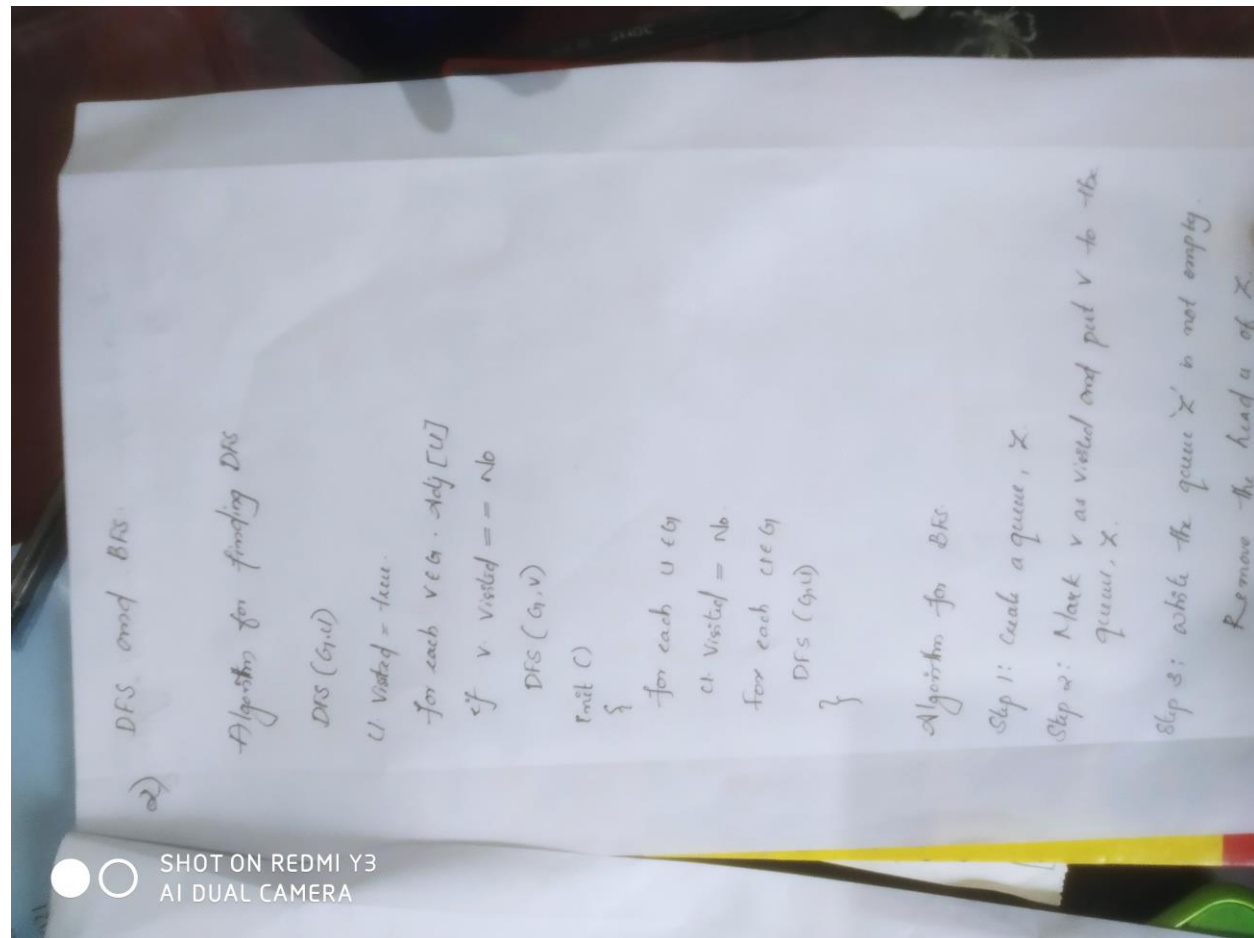 2) DFS and BFS.
Algorithm for finding DFS
DFS (G,U)
U. Visited = true.
for each v ∈ G. Adj [U]
if v. visited == No
DFS (G, v)
init ()
{
for each U ∈ G
U. Visited = No.
For each U ∈ G
DFS (G,U)
}
Algorithm for BFS.
Step 1: Create a queue, Z.
Step 2: Mark v as visited and put v to the
queue, Z.
Step 3: while the queue 'Z' is not empty.
Remove the head u of Z.
SHOT ON REDMI Y3
AI DUAL CAMERA